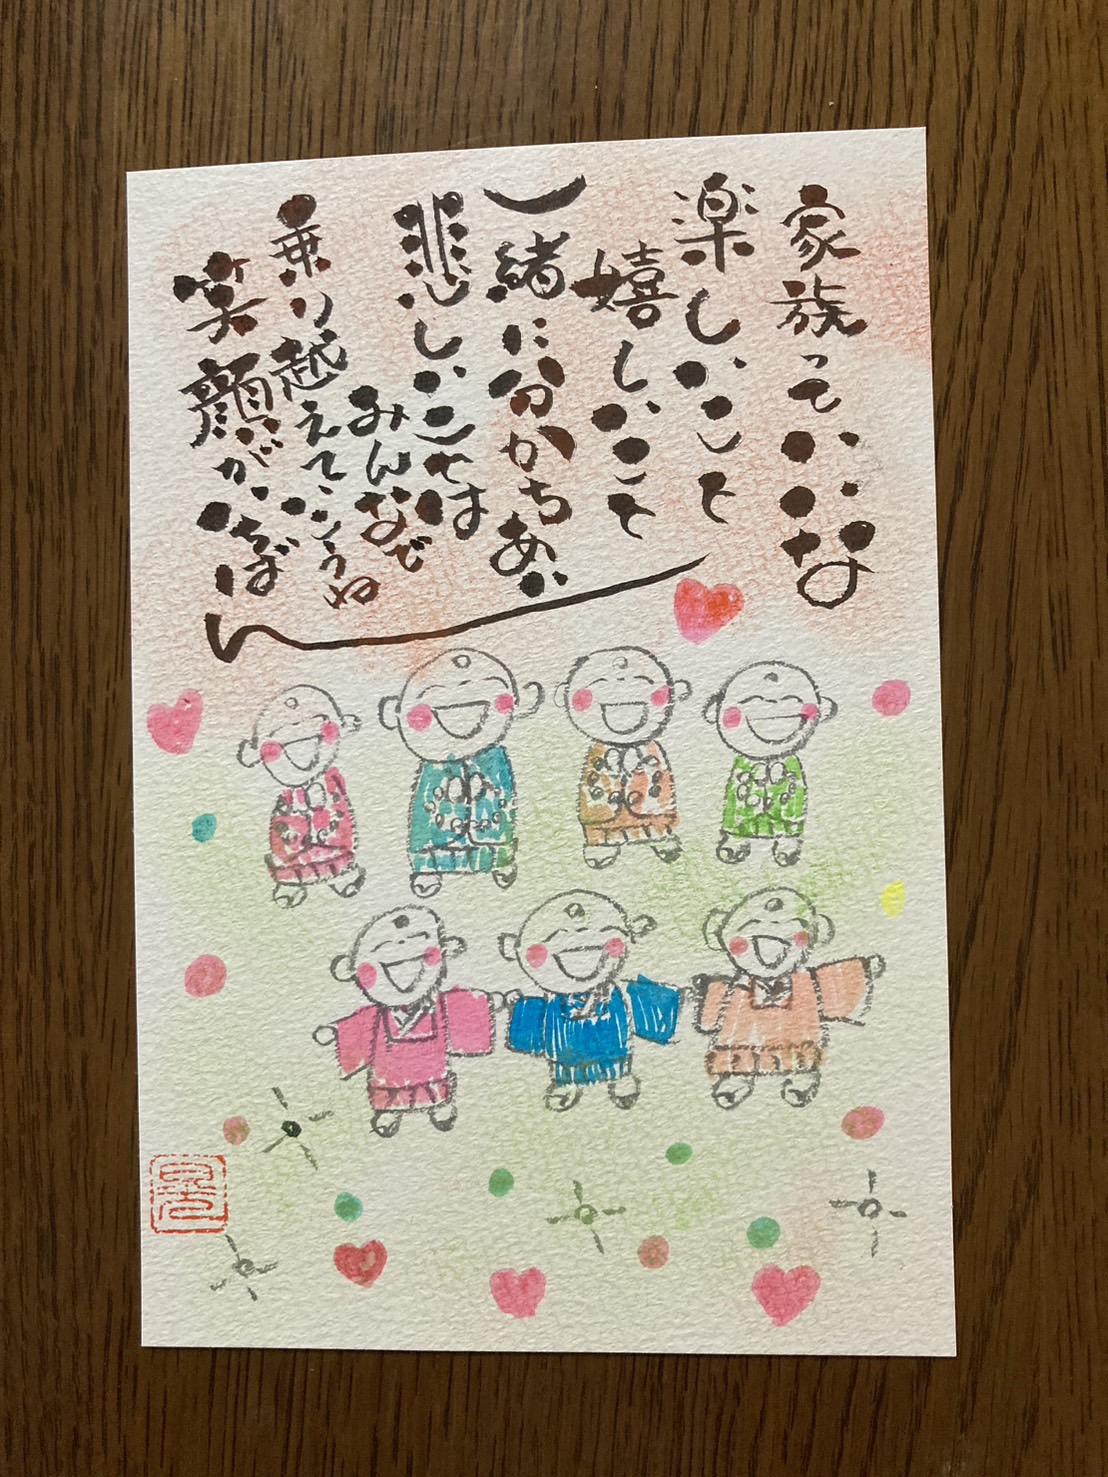 家族っていいな
楽しいこと
嬉しいこと
一緒に分かちあい
悲しいことは
みんなで
乗り越えていこうね
笑顔がいちばん